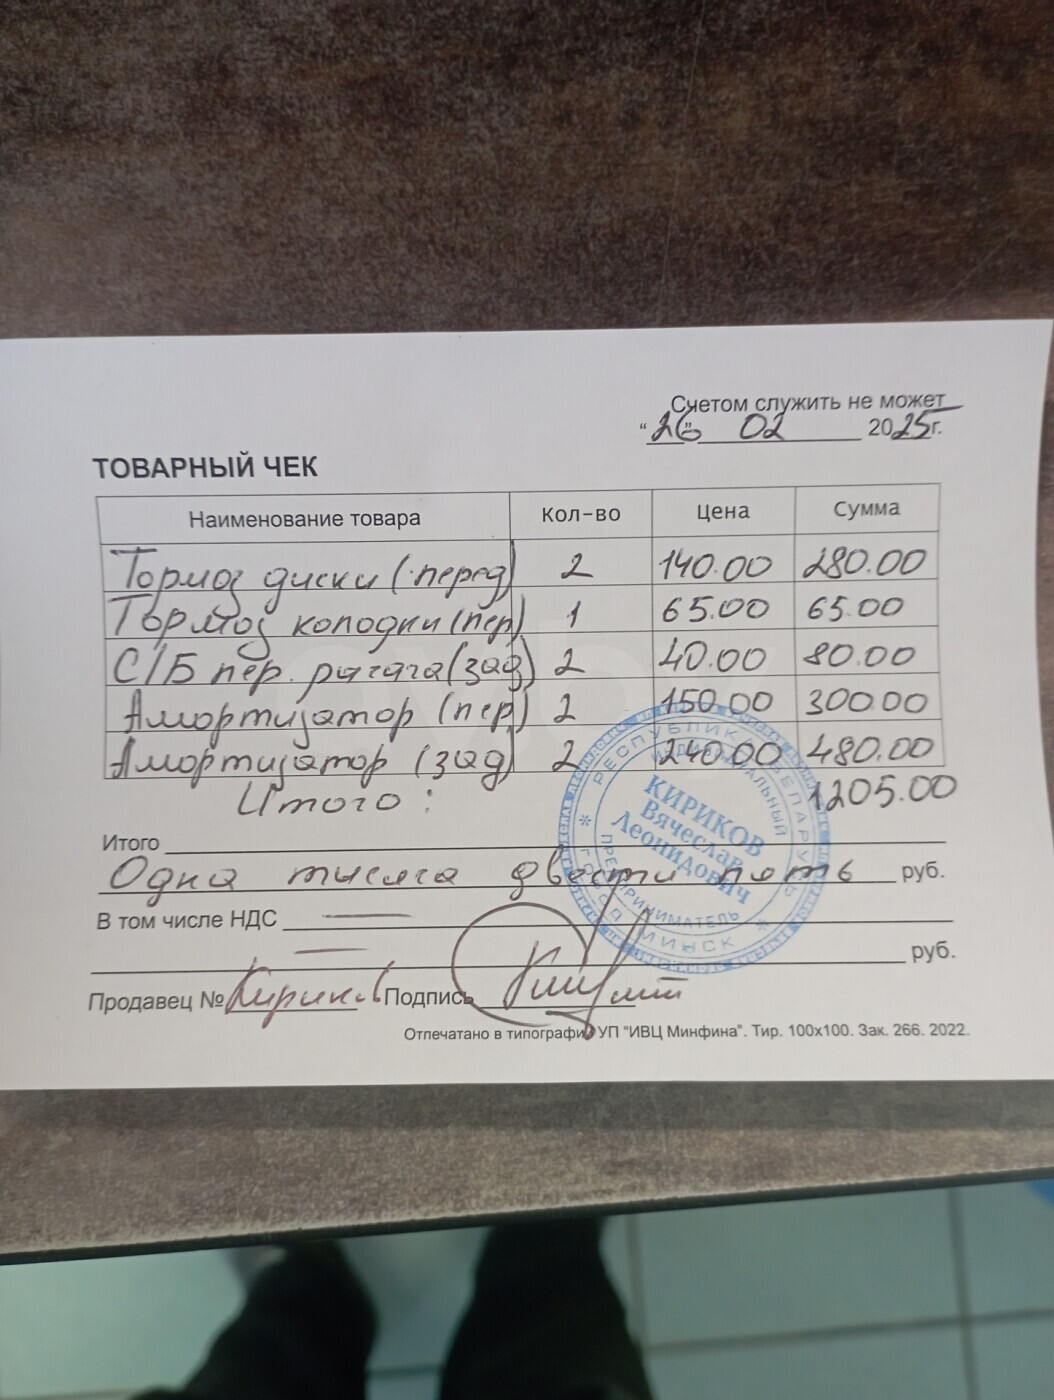 Счетом служить не может
“26” 02 2025г.
ТОВАРНЫЙ ЧЕК
Наименование товара Кол-во Цена Сумма
Тормоз диски (перед) 2 140.00 280.00
Тормоз колодки (пер) 1 65.00 65.00
С/Б пер. рычага (зад) 2 40.00 80.00
Амортизатор (пер) 2 150.00 300.00
Амортизатор (зад) 2 240.00 480.00
Итого: 1205.00
Итого
Одна тысяча двести пять руб.
В том числе НДС —
— руб.
Продавец № Кириков Подпись
Отпечатано в типографии УП “ИВЦ Минфина”. Тир. 100х100. Зак. 266. 2022.
РЕСПУБЛИКА БЕЛАРУСЬ
ИНДИВИДУАЛЬНЫЙ
КИРИКОВ
Вячеслав
Леонидович
ПРЕДПРИНИМАТЕЛЬ
МИНСК